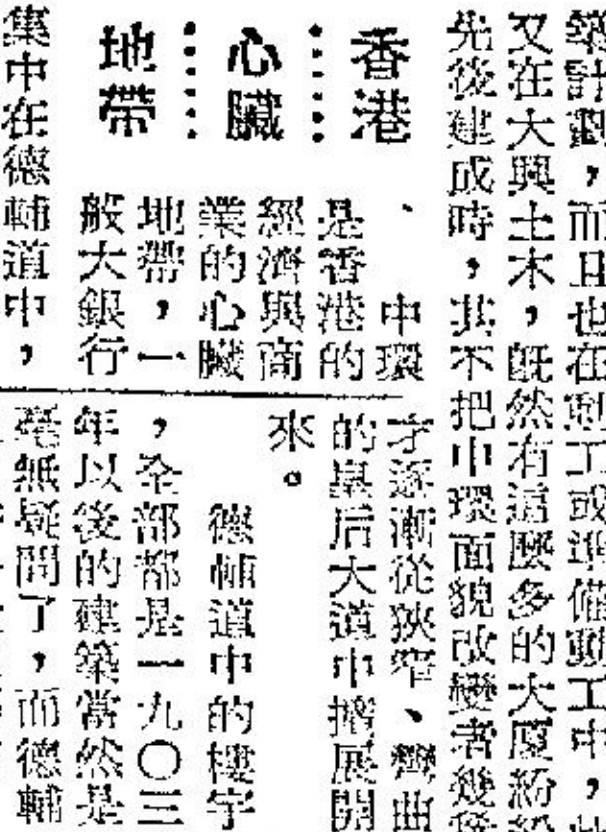 築計劃,而且也在動工或準備動工中,
又在大興土木,既然有這麼多的大厦紛
先後建成時,其不把中環面貌改變者幾
香港
心臟
地帶
、中環
是香港的
經濟與商
業的心臟
地帶,一
般大銀行
集中在德輔道中,
才逐漸從狹窄、彎曲
的皇后大道中擴展開
來。
德輔道中的樓宇
,全部都是一九〇三
年以後的建築當然是
毫無疑問了,而德輔